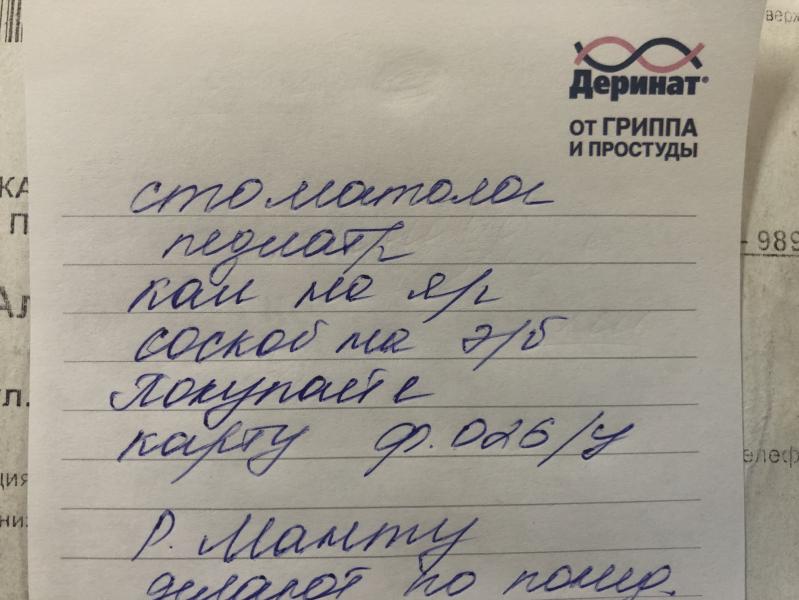 Деринат
ОТ ГРИППА
И ПРОСТУДЫ
стоматолог
педиатр
кал на я/г
соскоб на э/б
Покупаете
карту ф.026/у
Р. Манту
делают по понед.
989